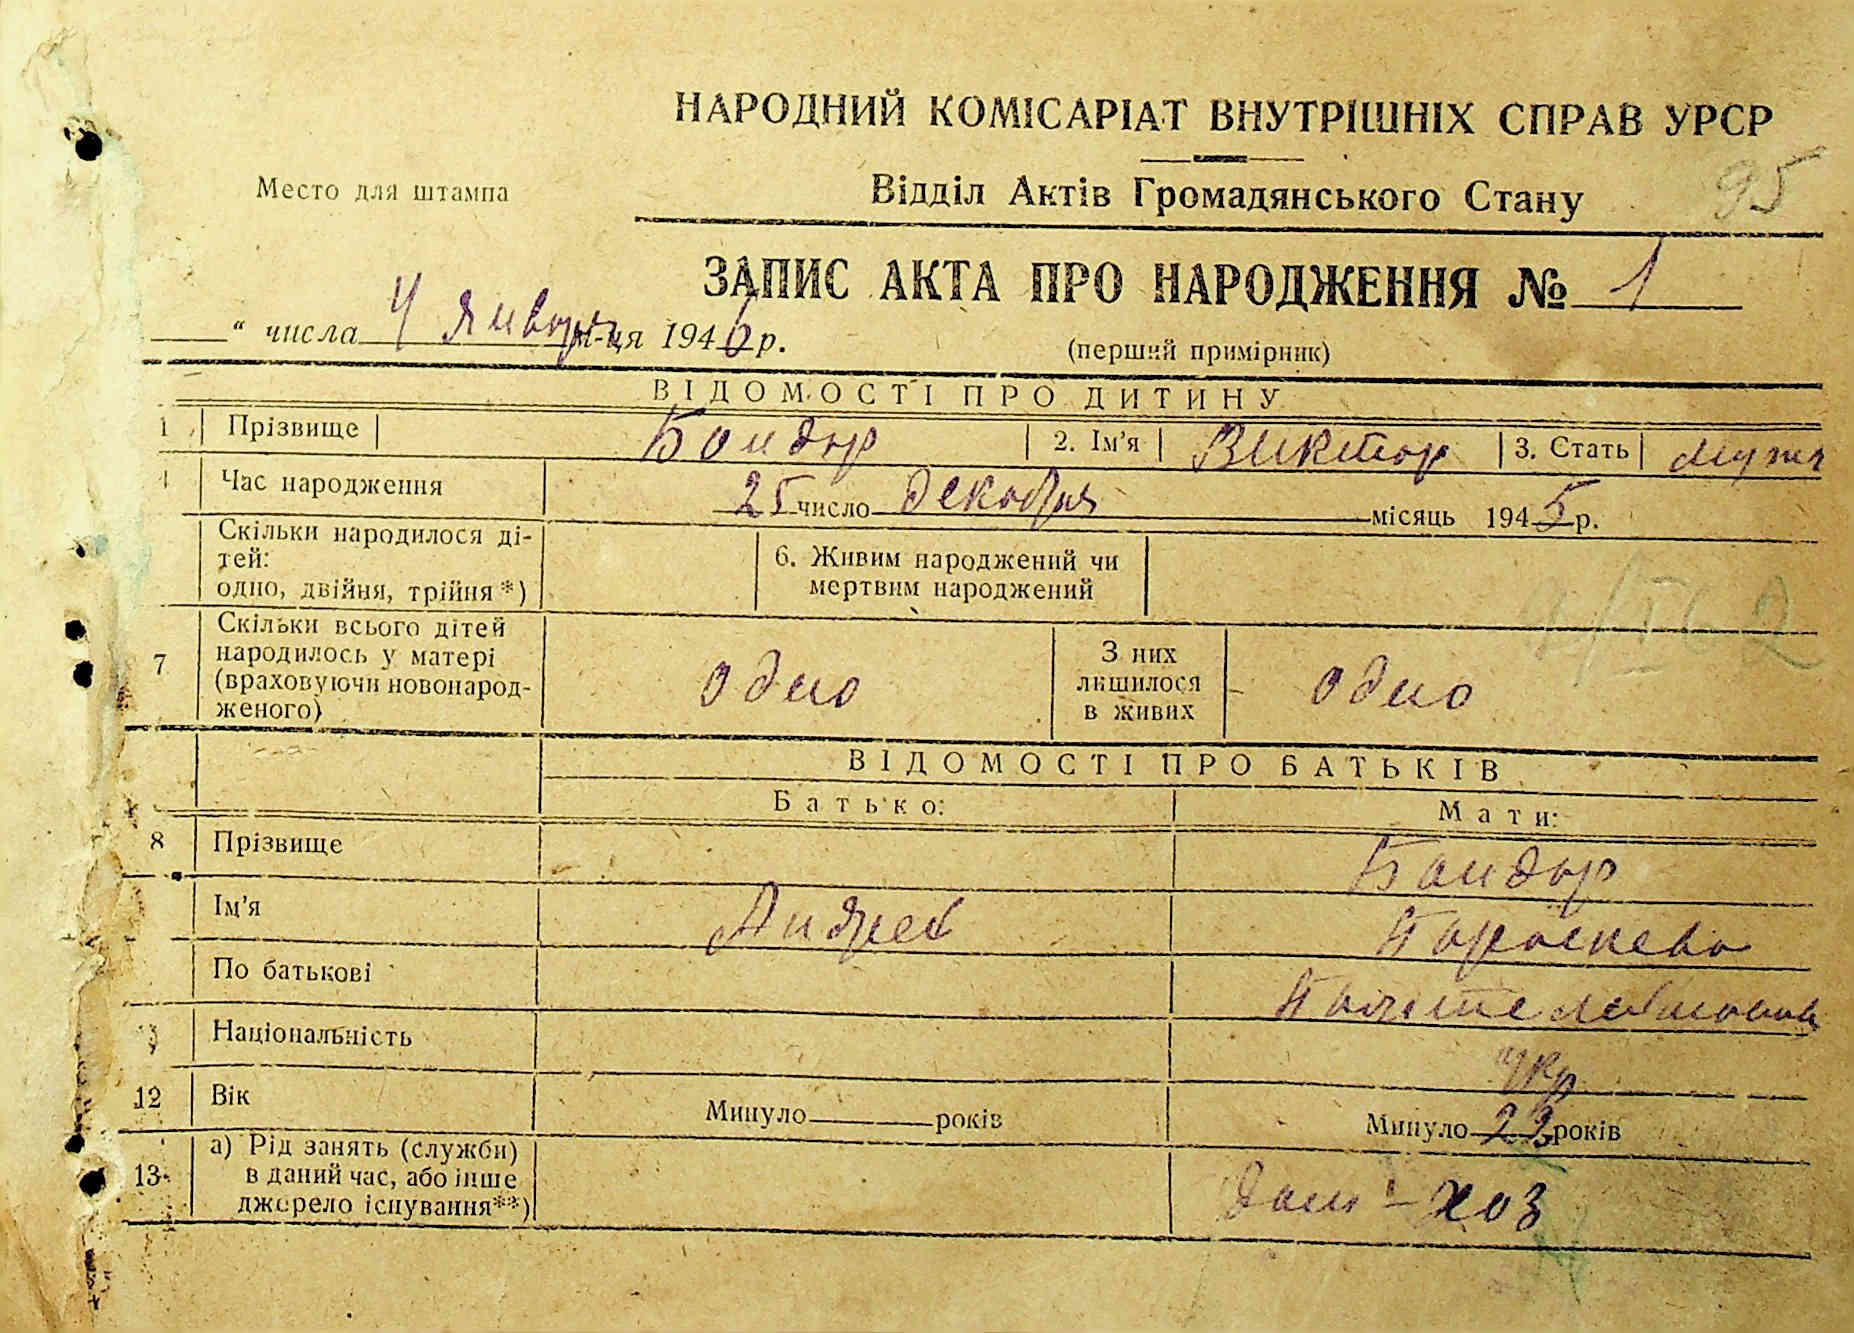 НАРОДНИЙ КОМІСАРІАТ ВНУТРІШНІХ СПРАВ УРСР
Место для штампа
Відділ Актів Громадянського Стану
95
ЗАПИС АКТА ПРО НАРОДЖЕННЯ № 1
“ числа 4 января м-ця 1946 р.
(перший примірник)
ВІДОМОСТІ ПРО ДИТИНУ
1 Прізвище Бондар 2. Ім'я Виктор 3. Стать муж
4 Час народження 25 число декабря місяць 1945 р.
Скільки народилося ді-
тей:
одно, двійня, трійня *)
6. Живим народжений чи
мертвим народжений
7 Скільки всього дітей
народилось у матері
(враховуючи новонарод-
женого)
одно
З них
лишилося
в живих
одно
ВІДОМОСТІ ПРО БАТЬКІВ
Батько: Мати:
8 Прізвище Бондар
Ім'я Андрей Параскева
По батькові
Національність укр
12 Вік Минуло років Минуло 23 років
13 а) Рід занять (служби)
в даний час, або інше
джерело існування**)
дом-хоз